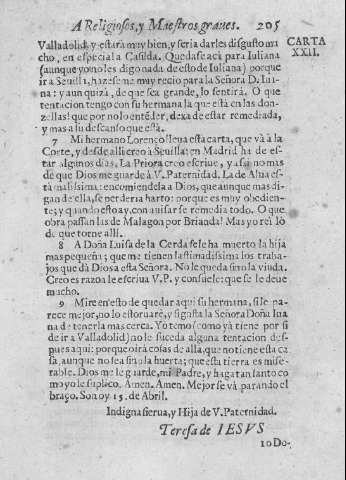 A Religiosos, y Maestros graues. 205
CARTA
XXII.
Valladolid, y estarà muy bien, y seria darles disgusto mu
cho, en especial a Casilda. Quedase acà para Iuliana
(aunque yo no les digo nada de esto de Iuliana) porque
ir a Seuilla, hazeseme muy recio para la Señora D. Iua-
na: y aun quizà, de que sea grande, lo sentirà. O que
tentacion tengo con su hermana la que està en las don-
zellas! que por no lo entēder, dexa de estar remediada,
y mas a su descanso que està.
7 Mi hermano Lorenço lleua esta carta, que và à la
Corte, y desde alli creo à Seuilla: en Madrid ha de es-
tar algunos dias. La Priora creo escriue, y assi no mas
de que Dios me guarde à V. Paternidad. La de Alua es-
tà malissima: encomiendela a Dios, que aunque mas di-
gan de ella, se perderia harto: porque es muy obedien-
te; y quando esto ay, con auisar se remedia todo. O que
obra passan las de Malagon por Brianda! Mas yo reì lo
de que torne alli.
8 A Doña Luisa de la Cerda se le ha muerto la hija
mas pequeña; que me tienen lastimadissima los traba-
jos que dà Dios a esta Señora. No le queda sino la viuda.
Creo es razon le escriua V.P. y consuele: que se le deue
mucho.
9 Mire en esto de quedar aqui su hermana, si le pa-
rece mejor, no lo estoruarè, y si gusta la Señora Doña Iua
na de tenerla mas cerca. Yo temo (como yà tiene por si
de ir a Valladolid) no le suceda alguna tentacion des-
pues aqui: porque oirà cosas de allà, que no tiene esta ca
sa, aunque no sea sino la huerta; que esta tierra es mise-
rable. Dios me le guarde, mi Padre, y haga tan santo co
mo yo le suplico. Amen. Amen. Mejor se và parando el
braço. Son oy 15. de Abril.
Indigna sierua, y Hija de V. Paternidad.
Teresa de IESVS
10 Do-